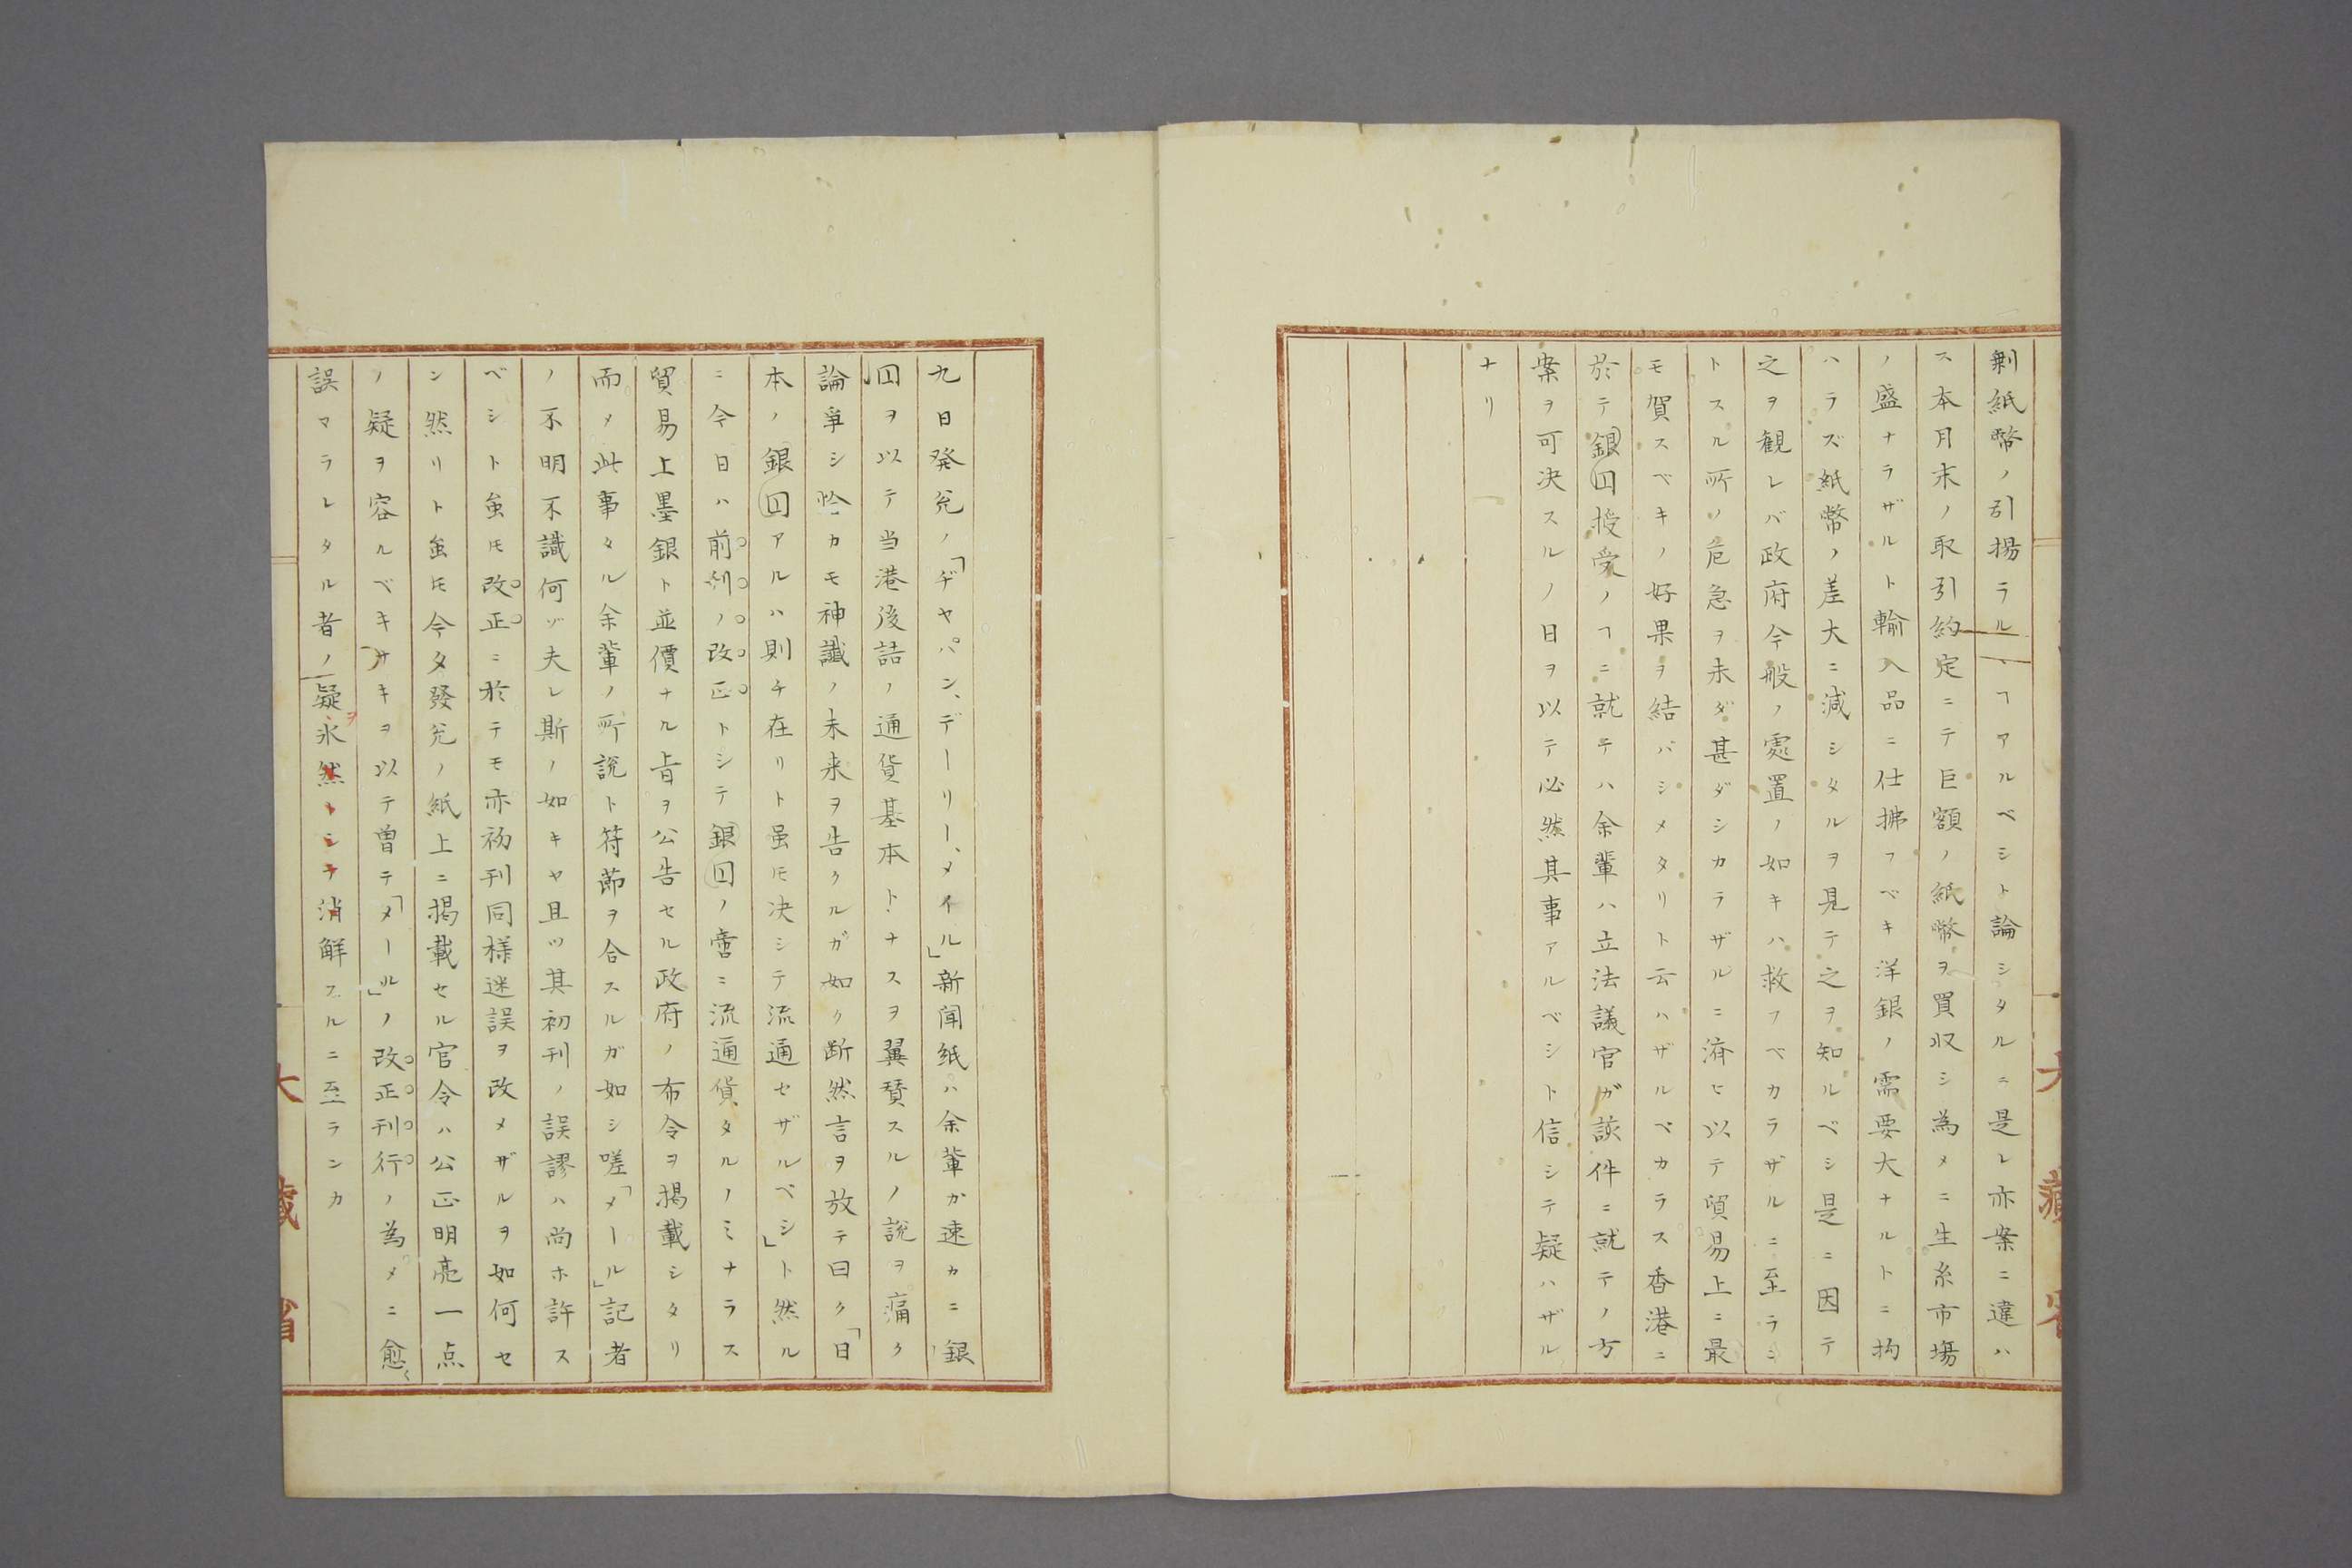 剰紙幣ノ引揚ラルヽヿアルベシト論シタルニ是レ亦案ニ違ハ
ス本月末ノ取引約定ニテ巨額ノ紙幣ヲ買収シ為メニ生糸市場
ノ盛ナラザルト輸入品ニ仕拂フベキ洋銀ノ需要大ナルトニ拘
ハラズ紙幣ノ差大ニ減シタルヲ見テ之ヲ知ルベシ是ニ因テ
之ヲ観レバ政府今般ノ處置ノ如キハ救フベカラザルニ至ラン
トスル所ノ危急ヲ未ダ甚ダシカラザルニ済ヒ以テ貿易上ニ最
モ賀スベキノ好果ヲ結バシメタリト云ハザルベカラス香港ニ
於テ銀円授受ノヿニ就テハ余輩ハ立法議官ガ該件ニ就テノ方
案ヲ可決スルノ日ヲ以テ必然其事アルベシト信シテ疑ハザル
ナリ
九日発兌ノ「ヂャパン、デーリー、メイル」新聞紙ハ余輩カ速カニ銀
円ヲ以テ当港後詰ノ通貨基本トナスヲ翼賛スルノ說ヲ痛ク
論爭シ恰カモ神讖ノ未来ヲ告クルガ如ク断然言ヲ放テ曰ク「日
本ノ銀円アルハ則チ在リト虽𪜈决シテ流通セザルベシ」ト然ル
ニ今日ハ前刊ノ改正トシテ銀円ノ啻ニ流通貨タルノミナラス
貿易上墨銀ト並價ナル旨ヲ公告セル政府ノ布令ヲ掲載シタリ
而メ此事タル余輩ノ所說ト符節ヲ合スルガ如シ嗟「メール」記者
ノ不明不識何ゾ夫レ斯ノ如キヤ且ツ其初刊ノ誤謬ハ尚ホ許ス
ベシト虽𪜈改正ニ於テモ亦初刊同様迷誤ヲ改メザルヲ如何セ
ン然リト虽𪜈今タ發兌ノ紙上ニ掲載セル官令ハ公正明亮一点
ノ疑ヲ容ルベキナキヲ以テ曽テ「メール」ノ改正刊行ノ為メニ愈〻
誤マラレタル者ノ疑ヲ氷然トシテ消解スルニ至ランカ
大藏省